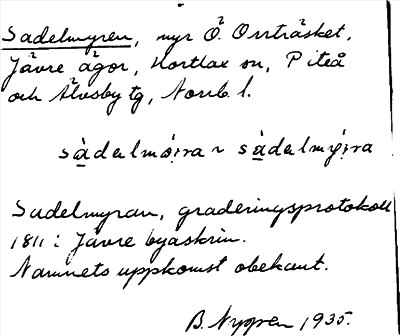 Sadelmyren, myr Ö. Orrträsket,
Jävre ägor, Hortlax sn, Piteå
och Älvsby tg, Norrb. l.
sàdalmøi̯ra ~ sàdalmyi̯ra
Sadelmyran, graderingsprotokoll
1811 i Jävre byaskrin.
Namnets uppkomst obekant.
B. Nygren 1935.